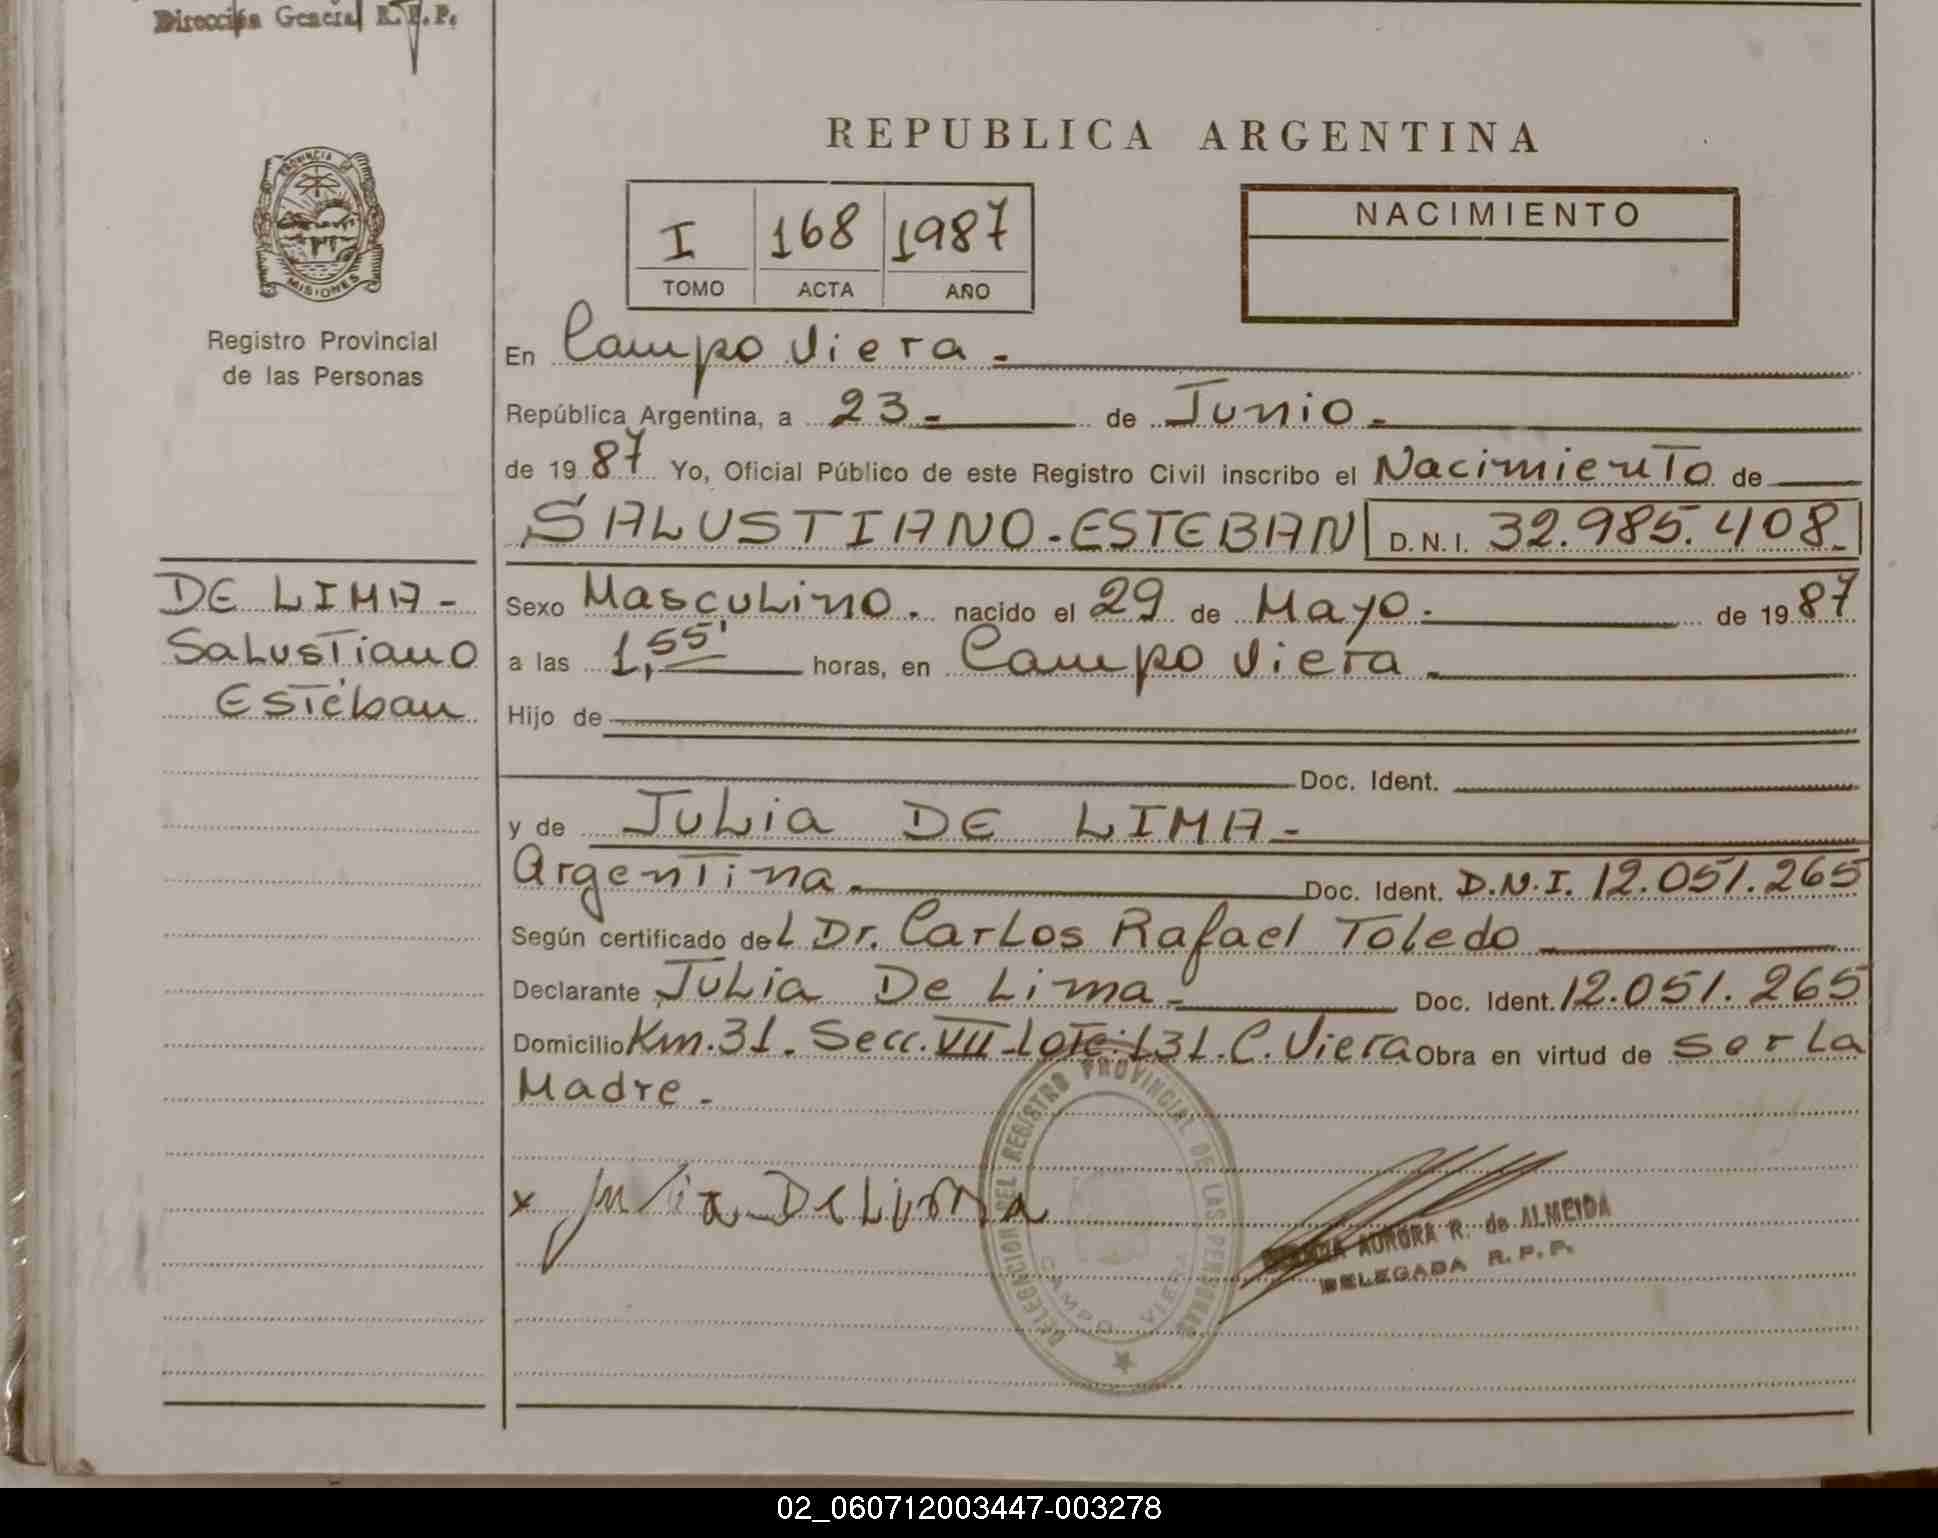 Dirección General R.P.P.
PROVINCIA DE
MISIONES
Registro Provincial
de las Personas
DE LIMA -
Salustiano
Estéban
REPUBLICA ARGENTINA
I 168 1987
TOMO ACTA AÑO
NACIMIENTO
En Campo Viera.-
República Argentina, a 23.- de Junio.-
de 19 87 Yo, Oficial Público de este Registro Civil inscribo el Nacimiento de
SALUSTIANO - ESTEBAN D.N.I. 32.985.408.-
Sexo Masculino. nacido el 29 de Mayo.- de 19 87
a las 1,55' horas, en Campo Viera.-
Hijo de
Doc. Ident.
y de Julia DE LIMA.-
Argentina.- Doc. Ident. D.N.I. 12.051.265
Según certificado del Dr. Carlos Rafael Toledo
Declarante Julia De Lima.- Doc. Ident. 12.051.265
Domicilio Km.31. Secc. VII - Lote: 131. C. Viera Obra en virtud de ser la
Madre.-
DELEGACION DEL REGISTRO PROVINCIAL DE LAS PERSONAS
CAMPO VIERA
x Julia De Lima
AURORA R. de ALMEIDA
DELEGADA R.P.P.
02_060712003447-003278